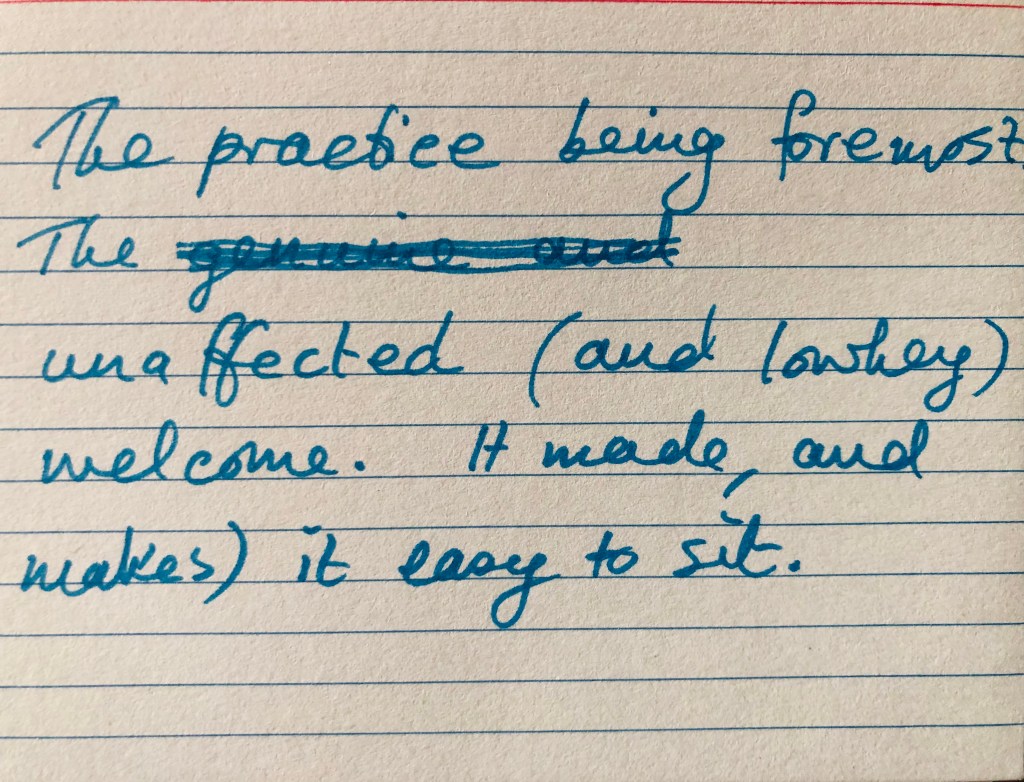 The practice being foremost.
The genuine and
unaffected (and lowkey)
welcome. It made, and
makes) it easy to sit.